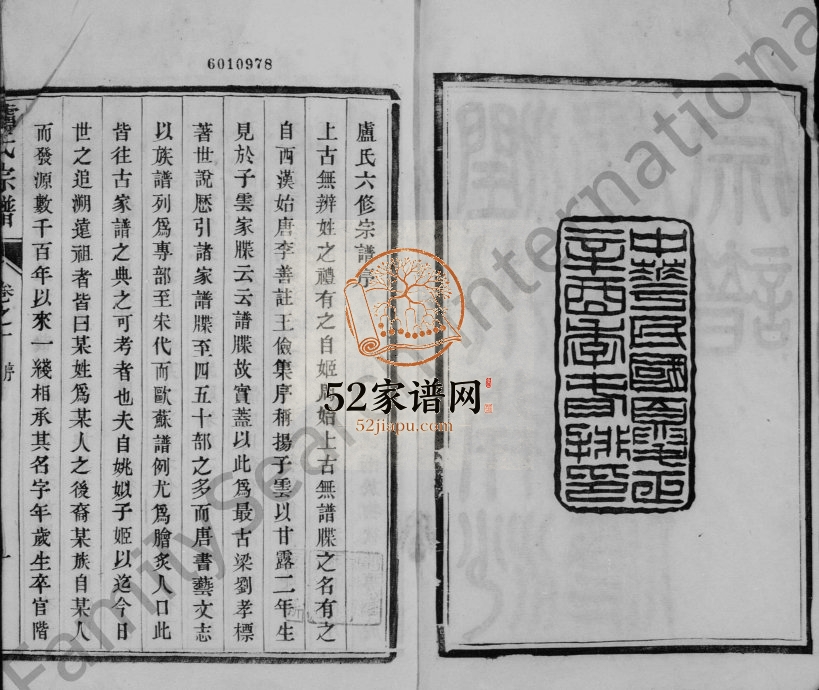 6010978
中華民國夏正
辛酉年春排印
盧氏六修宗譜序
上古無辨姓之禮有之自姬周始上古無譜牒之名有之
自西漢始唐李善註王儉集序稱揚子雲以甘露二年生
見於子雲家牒云云譜牒故實蓋以此爲最古梁劉孝標
著世說歷引諸家譜牒至四五十部之多而唐書藝文志
以族譜列爲專部至宋代而歐蘇譜例尤爲膾炙人口此
皆往古家譜之典之可考者也夫自姚姒子姬以迄今日
世之追溯遠祖者皆曰某姓爲某人之後裔某族自某人
而發源數千百年以來一綫相承其名字年歲生卒官階
盧氏宗譜
卷之一
序
一
52家谱网
52jiapu.com
FamilySearch International